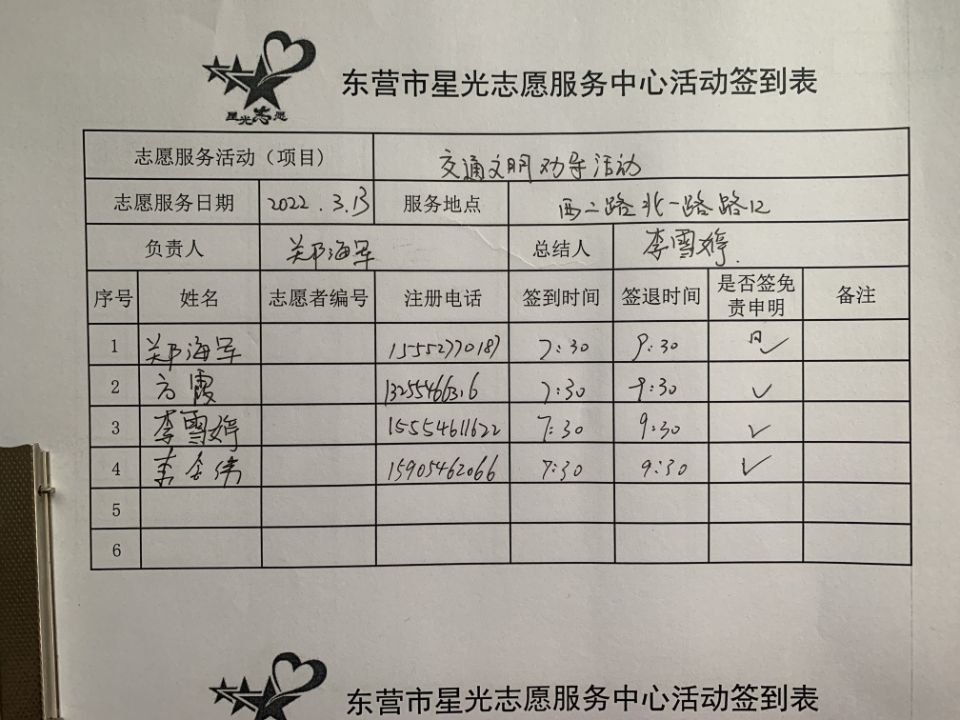 星光志愿
东营市星光志愿服务中心活动签到表
志愿服务活动（项目） 交通文明劝导活动
志愿服务日期 2022.3.13 服务地点 西二路北一路路口
负责人 郑海军 总结人 李雪婷.
序号 姓名 志愿者编号 注册电话 签到时间 签退时间 是否签免责申明 备注
1 郑海军 15552770187 7:30 9:30 ✓
2 方霞 7:30 9:30 ✓
3 李雪婷 15554611622 7:30 9:30 ✓
4 15905462066 7:30 9:30 ✓
5
6
东营市星光志愿服务中心活动签到表